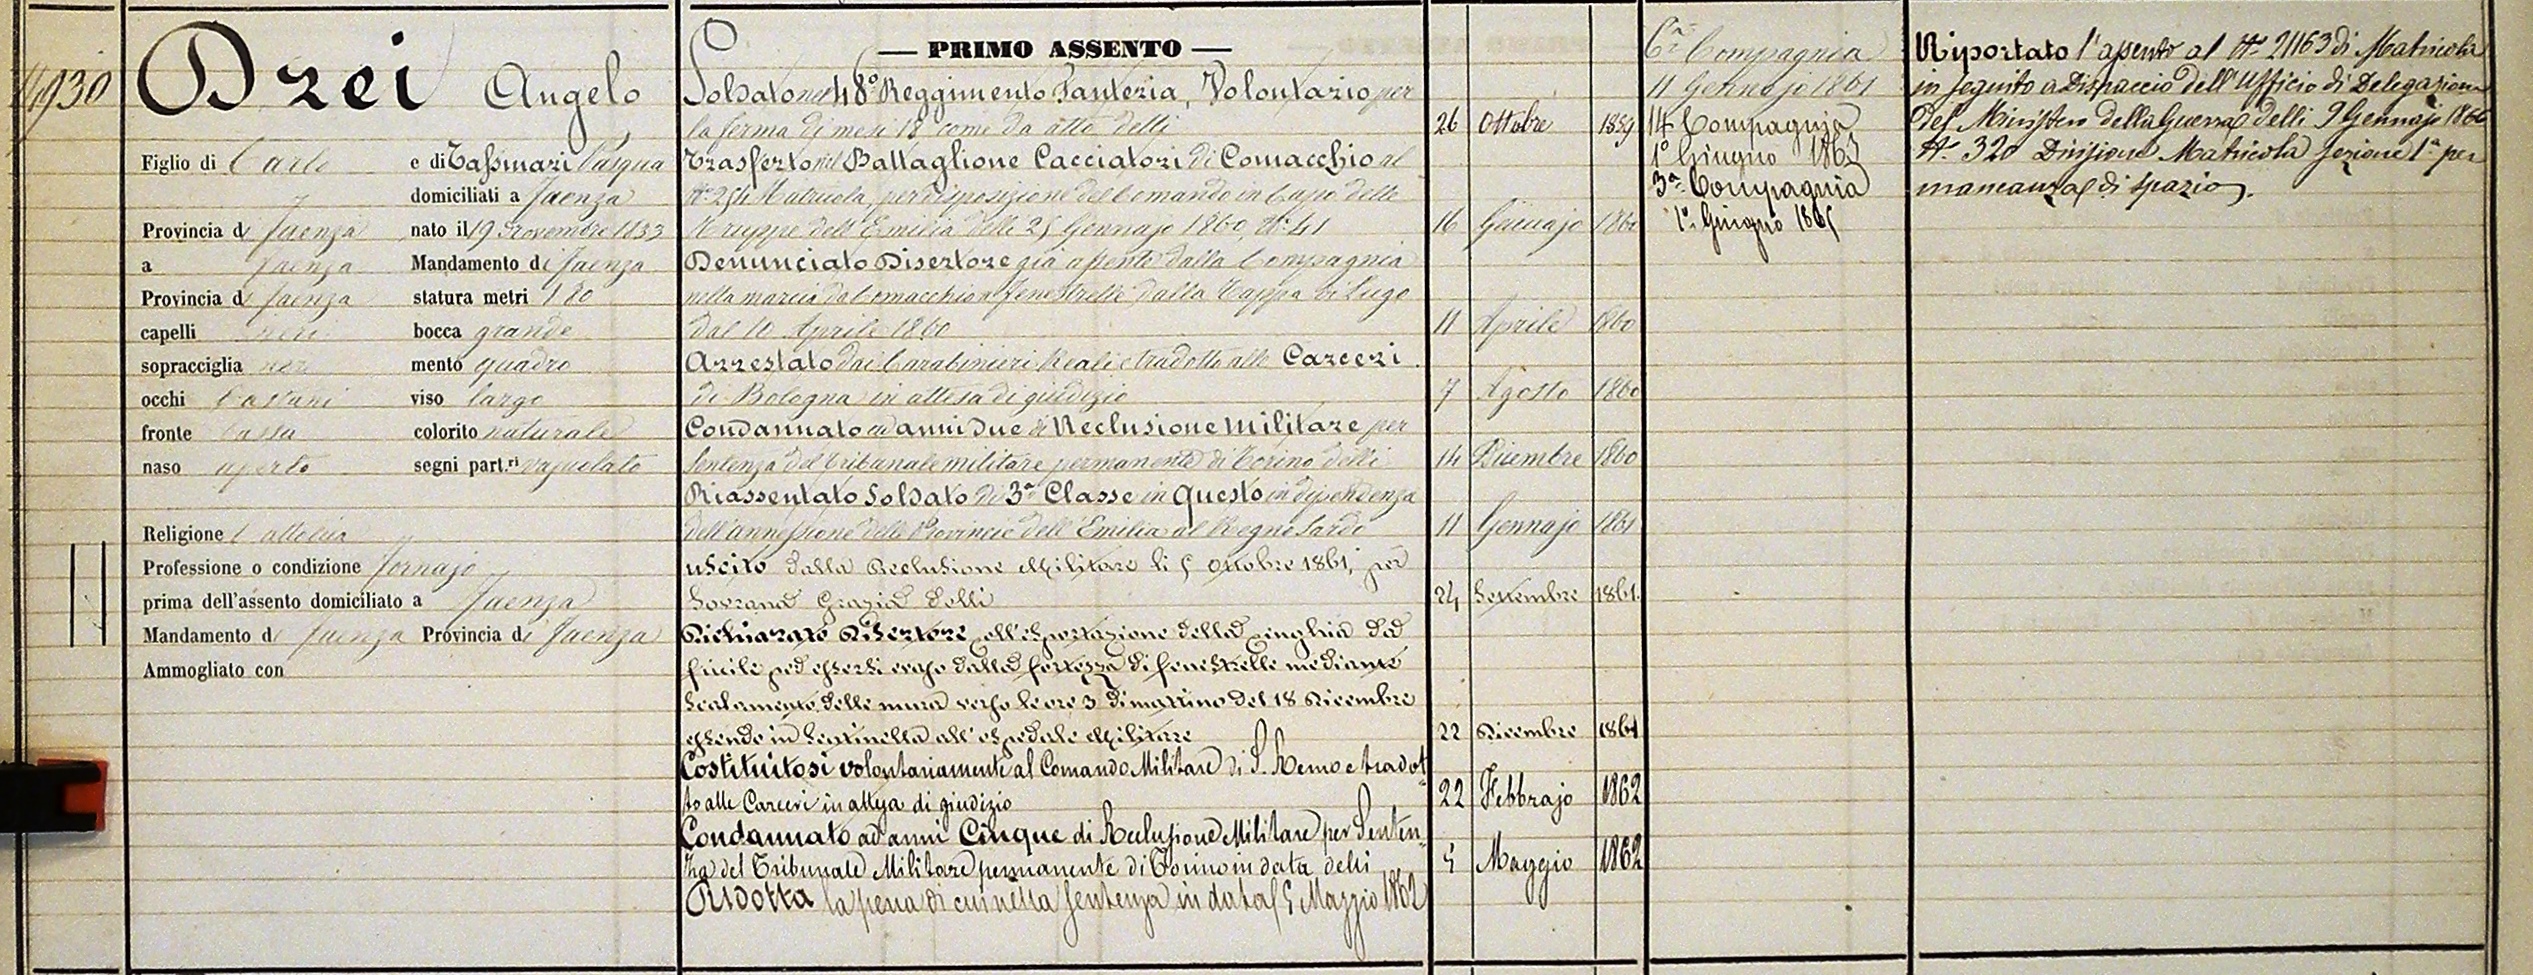 11930
Drei Angelo
Figlio di Carlo e di Tassinari Pasqua
domiciliati a Faenza
Provincia di Faenza nato il 19 Novembre 1833
a Faenza Mandamento di Faenza
Provincia di Faenza statura metri 1 80
capelli neri bocca grande
sopracciglia nere mento quadro
occhi castani viso largo
fronte bassa colorito naturale
naso aperto segni part.ri vajuolato
Religione Cattolica
Professione o condizione Fornajo
prima dell'assento domiciliato a Faenza
Mandamento di Faenza Provincia di Faenza
Ammogliato con
— PRIMO ASSENTO —
Soldato nel 48° Reggimento Fanteria, Volontario per
la ferma di mesi 18 come da atto delli 26 Ottobre 1859
Trasferto nel Battaglione Cacciatori di Comacchio al
N° 254 Matricola, per disposizione del Comando in Capo delle
Truppe dell'Emilia delli 25 Gennajo 1860, N° 41 16 Gennajo 1860
Denunciato Disertore già assento dalla Compagnia
nella marcia da Comacchio a Fenestrelle dalla Tappa di Lugo
dal 10 Aprile 1860 11 Aprile 1860
Arrestato dai Carabinieri Reali e tradotto alle Carceri
di Bologna in attesa di giudizio 7 Agosto 1860
Condannato ad anni due di Reclusione Militare per
sentenza del Tribunale militare permanente di Torino delli 14 Dicembre 1860
Riassentato Soldato di 3a Classe in Questo in dipendenza
dell'annessione delle Provincie dell'Emilia al Regno Sardo 11 Gennajo 1861
uscito dalla Reclusione Militare li 5 Ottobre 1861, per
Sovrana Grazia delli 24 Settembre 1861.
Dichiarato Disertore coll'esportazione della cinghia da
fucile per essersi evaso dalla fortezza di Fenestrelle mediante
scalamento delle mura verso le ore 3 di mattino del 18 Dicembre
essendo in sentinella all'ospedale Militare 22 Dicembre 1861
Costituitosi volontariamente al Comando Militare di S. Remo e tradot
to alle Carceri in attesa di giudizio 22 Febbrajo 1862
Condannato ad anni Cinque di Reclusione Militare per Senten
za del Tribunale Militare permanente di Torino in data delli 5 Maggio 1862
Ridotta la pena di cui nella sentenza in data 5 Maggio 1862
6a Compagnia
11 Gennajo 1861
14 Compagnia
1° Giugno 1863
3a Compagnia
1° Giugno 1865
Riportato l'assento al N° 21163 di Matricola
in seguito a Dispaccio dell'Ufficio di Delegazione
del Ministero della Guerra delli 9 Gennajo 1866
N° 320 Divisione Matricola Sezione 1a per
mancanza di spazio.